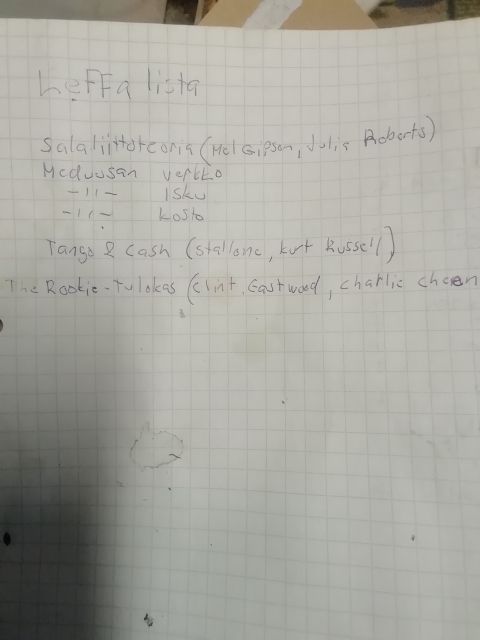 Leffa lista
Salaliittoteoria (Mel Gipson, Julia Roberts)
Meduusan verkko
-11- Isku
-11- kosto
Tango & Cash (Stallone, kurt Russell)
The Rookie-Tulokas (Clint, Eastwood, charlie cheen